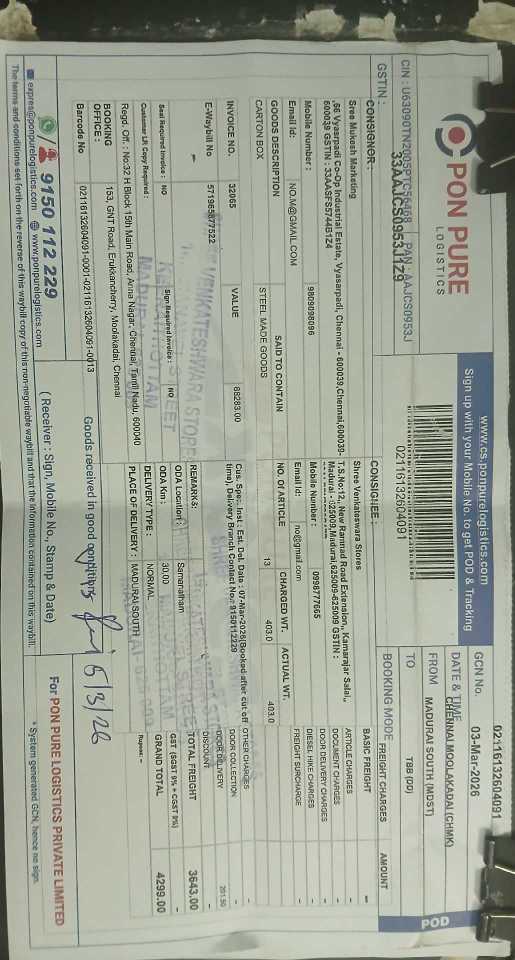 PON PURE
LOGISTICS
CIN : U63090TN2005PTC56468 PAN : AAJCS0953J
GSTIN : 33AAJCS0953J1Z9
www.cs.ponpurelogistics.com
Sign up with your Mobile No. to get POD & Tracking
02116132604091
GCN No. 02116132604091
DATE & TIME 03-Mar-2026
FROM CHENNAI MOOLAKADAI (CHMK)
TO MADURAI SOUTH (MDST)
BOOKING MODE TBB (GD)
POD
CONSIGNOR :
Sree Mukesh Marketing
,66 Vyasarpadi Co-Op Industrial Estate, Vyasarpadi, Chennai - 600039,Chennai,600039-
600039 GSTIN : 33AASFS5744B1Z4
Mobile Number : 9809098096
Email Id: NO.M@GMAIL.COM
CONSIGNEE :
Shree Venkateswara Stores
T.S.No:12, New Ramnad Road Extension,, Kamarajar Salai,,
Madurai - 625009,Madurai,625009-625009 GSTIN :
Mobile Number : 0998777665
Email Id: no@gmail.com
GOODS DESCRIPTION SAID TO CONTAIN NO. Of ARTICLE CHARGED WT. ACTUAL WT.
CARTON BOX STEEL MADE GOODS 13 403.0 403.0
INVOICE NO. 32065 VALUE 88283.00
Cus. Spec. Inst : Est. Del. Date : 07-Mar-2026(Booked after cut off
time), Delivery Branch Contact No.: 9150112229
E-Waybill No 571965877522
REMARKS:
Seal Required Invoice : NO Sign Required Invoice : NO
ODA Location : Samanatham
Customer LR Copy Required : –
ODA Km : 30.00
Regd. Off. : No:32 H Block 15th Main Road, Anna Nagar, Chennai, Tamil Nadu, 600040
DELIVERY TYPE : NORMAL
BOOKING OFFICE : 153, GNT Road, Erukkancherry, Moolakadai, Chennai
PLACE OF DELIVERY : MADURAI SOUTH
Barcode No 02116132604091-0001-02116132604091-0013
FREIGHT CHARGES AMOUNT
BASIC FREIGHT –
ARTICLE CHARGES –
DOCUMENT CHARGES –
DOOR DELIVERY CHARGES –
DIESEL HIKE CHARGES –
FREIGHT SURCHARGE –
OTHER CHARGES –
DOOR COLLECTION –
DOOR DELIVERY 201.50
DISCOUNT –
TOTAL FREIGHT 3643.00
GST (SGST 9% + CGST 9%) –
GRAND TOTAL 4299.00
Rupees: –
VENKATESHWARA STORES
Goods received in good conditions
5/3/26
9150 112 229
expres@ponpurelogistics.com www.ponpurelogistics.com
( Receiver : Sign, Mobile No., Stamp & Date)
For PON PURE LOGISTICS PRIVATE LIMITED
The terms and conditions set forth on the reverse of this waybill copy of this non-negotiable waybill and that the information contained on this waybill.
* System generated GCN, hence no sign.